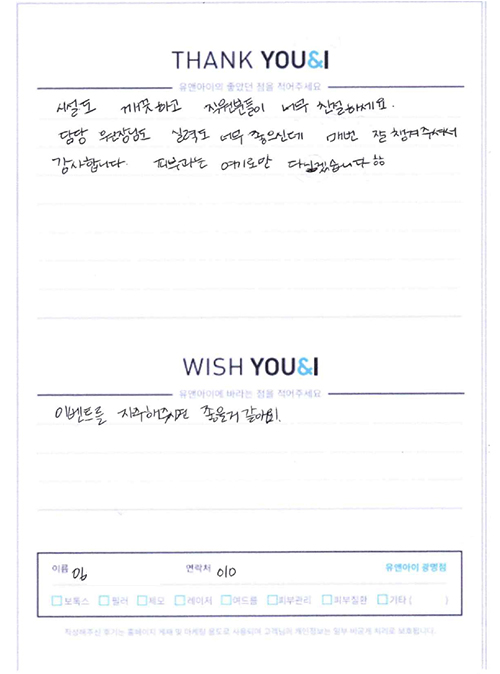 THANK YOU&I
유앤아이의 좋았던 점을 적어주세요
시설도 깨끗하고 직원분들이 너무 친절하세요.
담당 원장님도 실력도 너무 좋으신데 매번 잘 챙겨주셔서
감사합니다. 피부과는 여기로만 다니겠습니다 ㅎㅎ
WISH YOU&I
유앤아이에 바라는 점을 적어주세요
이벤트를 자주해주시면 좋을거 같아요!.
이름 임 연락처 010 유앤아이 광명점
보톡스 필러 제모 레이저 여드름 피부관리 피부질환 기타 ( )
작성해주신 후기는 홈페이지 게재 및 마케팅 용도로 사용되며 고객님의 개인정보는 일부 비공개 처리로 보호됩니다.